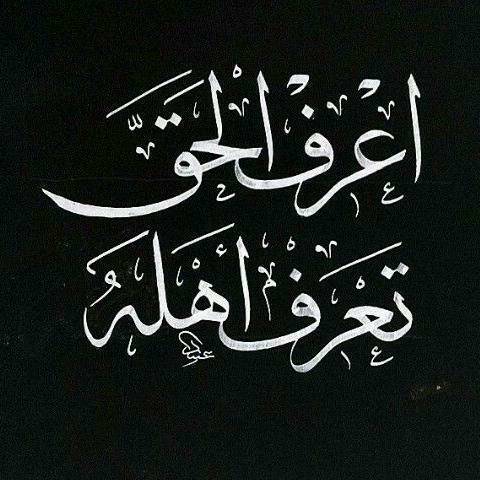 اعْرِفْ الْحَقَّ
تَعْرِفْ أَهْلَهُ